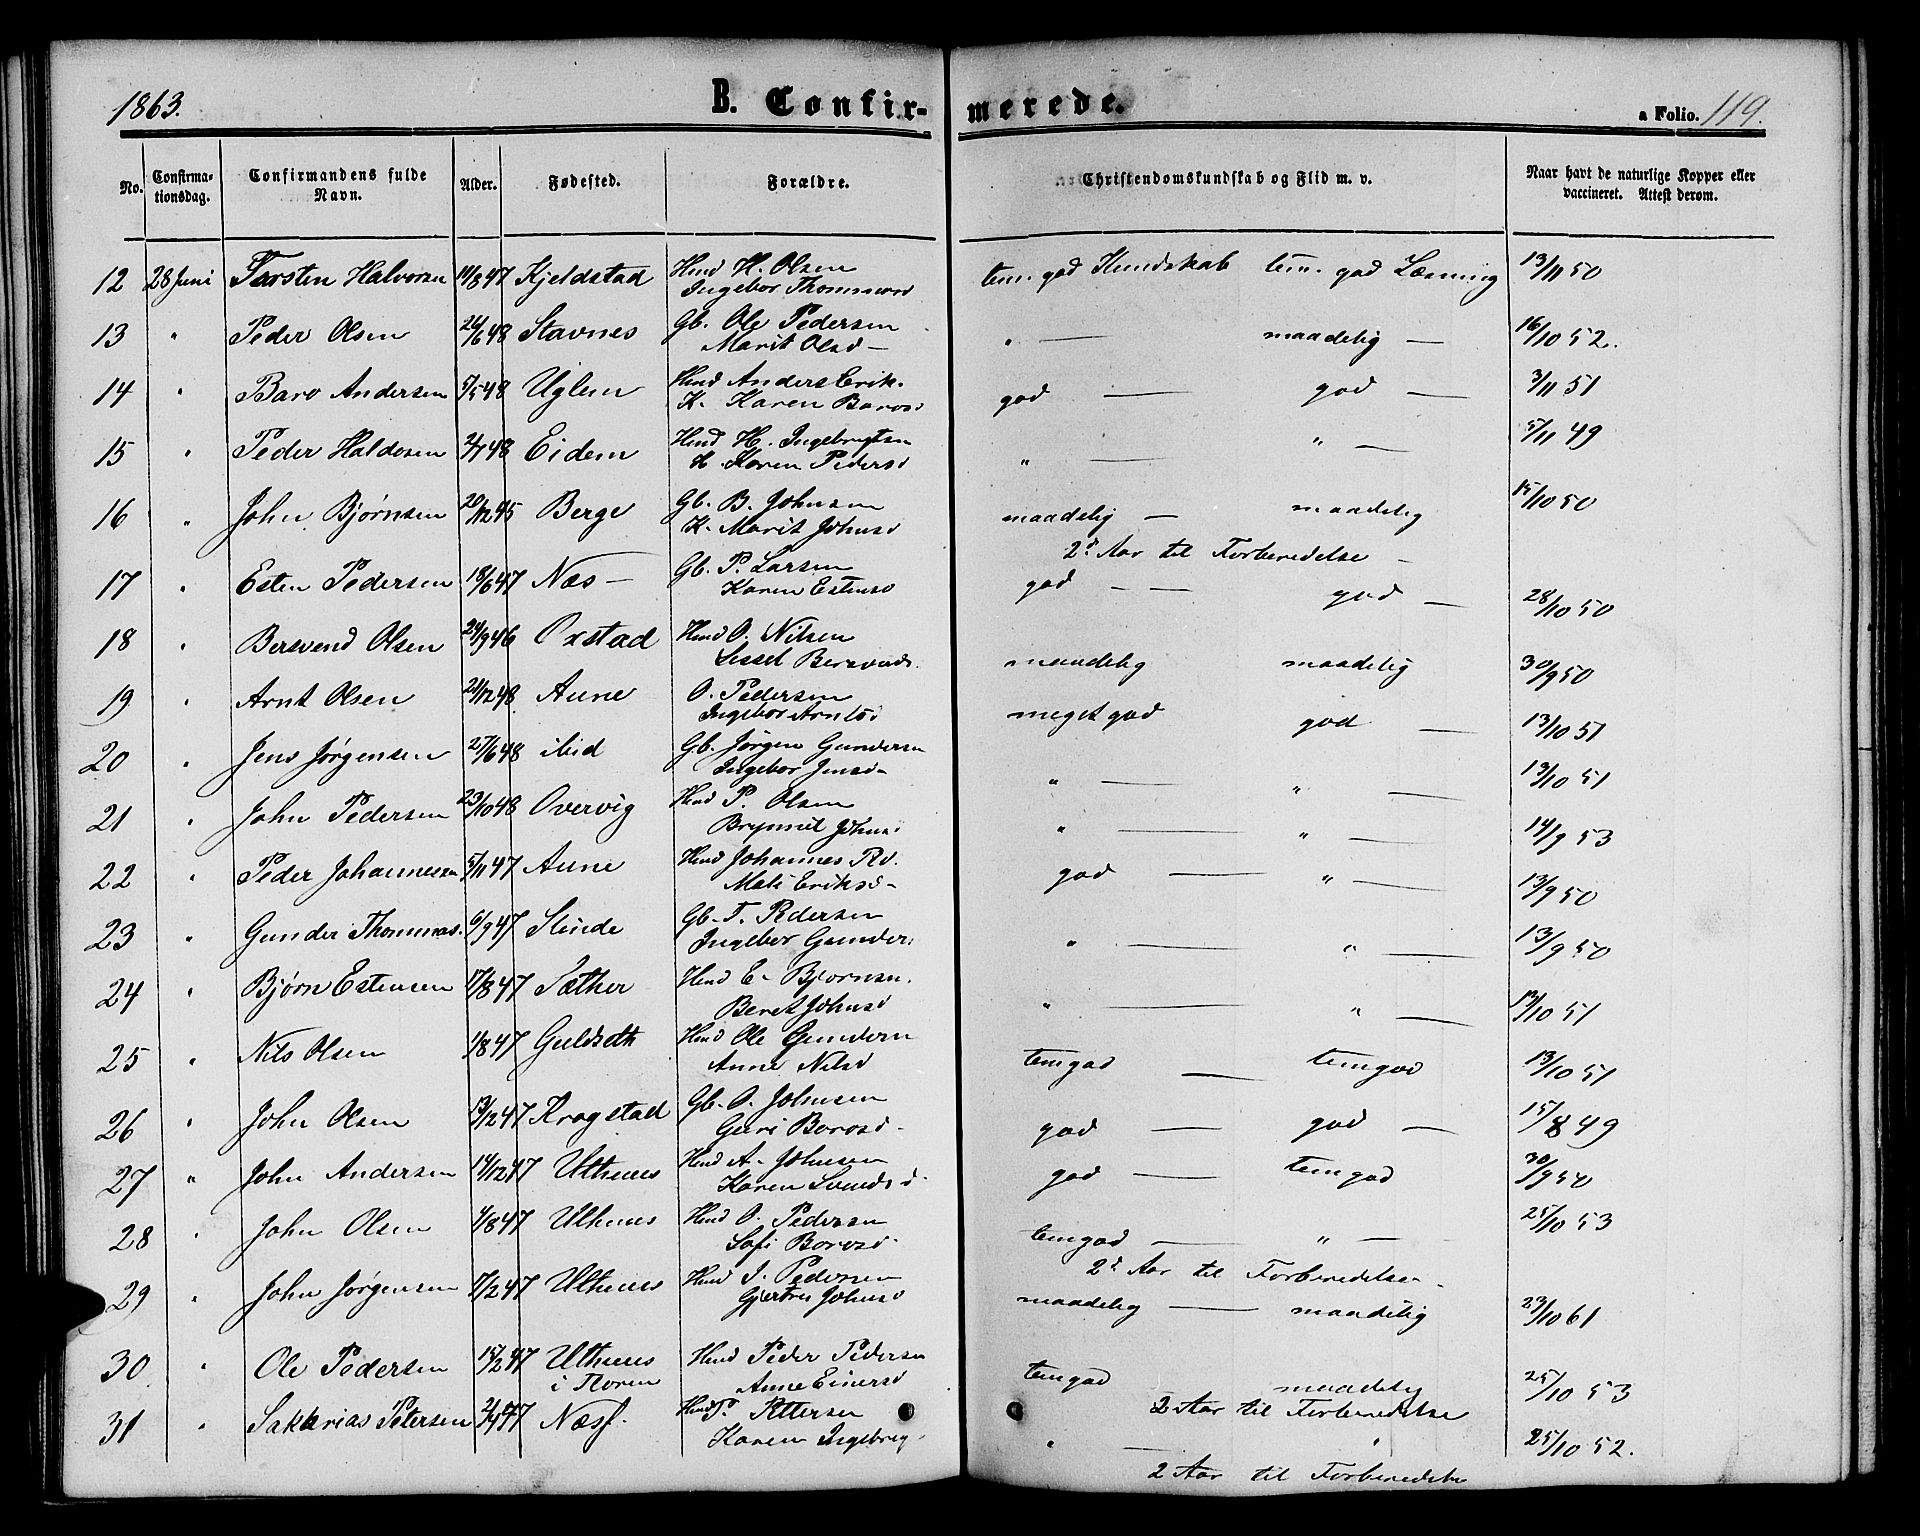 1863. B. Confir- merede. a Folio. 119.
No. Confirma-tionsdag. Confirmandens fulde Navn. Alder. Fødested. Forældre. Christendomskundskab og Flid m. v. Naar havt de naturlige Kopper eller vaccineret. Attest derom.
12 28 Juni Torsten Halvorsen 14/8 47 Kjeldstad Hmd H. Olsen tem. god Kundskab tem. god Læsning 13/11 50
Ingebor Thommesd
13 " Peder Olsen 24/6 48 Stavnes Gb. Ole Pedersen " — maadelig — 16/10 52.
Marit Olsd —
14 " Baro Andersen 5/5 48 Uglem Hmd Anders Erik. god — god — 3/11 51
K. Karen Barosd
15 " Peder Haldosen 2/7 48 Eidem Hmd H. Ingebrigtsen " — " — 5/11 49
K. Karen Pedersd
16 " John Bjørnsen 20/12 45 Berge Gb. B. Johnsen maadelig — maadelig 15/10 50
K. Marit Johnsd
2d Aar til Forberedelse —
17 " Esten Pedersen 18/6 47 Næs — Gb. P. Larsen god — — god — 28/10 50
Karen Estensd
18 " Bersvend Olsen 24/9 46 Oxstad Hmd O. Nilsen maadelig maadelig 30/9 50
Sissel Bersvends.
19 " Arnt Olsen 21/12 48 Aune O. Pedersen meget god god — 13/10 51
Ingebor Arntsd
20 " Jens Jørgensen 27/6 48 ibid Gb. Jørgen Gundersen " — " — 13/10 51
Ingebor Jensd —
21 " John Pedersen 23/10 48 Overvig Hmd P. Olsen " — " — 14/9 53
Brynnil Johnsd
22 " Peder Johannesen 5/11 47 Aune Hmd Johannes Pd. god — " — 13/9 50
Mali Eriksd —
23 " Gunder Thommas. 6/9 47 Slinde Gb. T. Pedersen " — " — 13/9 50
Ingebor Gunder.
24 " Bjørn Estensen 17/8 47 Sæther Hmd E. Bjørnsen. " — " — 13/10 51
Beret Johnsd
25 " Nils Olsen 1/8 47 Guldseth Hmd Ole Gundersen temgod — temgod 13/10 51
Anne Nilsd
26 " John Olsen 13/12 47 Kragstad Gb. O. Johnsen god — god — 15/8 49
Guri Borosd —
27 " John Andersen 14/12 47 Uthuus Hmd A. Johnsen god — temgod 30/9 50
Karen Svends d.
28 " John Olsen 4/8 47 Uthuus Hmd O. Pedersen temgod — " — 25/10 53
Sofi Borosd.
2d Aar til Forberedelse —
29 " John Jørgensen 17/2 47 Uthuus Hmd J. Pedersen maadelig — maadelig 23/10 61
Gjertru Johnsd
30 " Ole Pedersen 15/2 47 Uthuus Hmd Peder Pedersen temgod maadelig 25/10 53
i Floren Anne Einersd
2 Aar til Forberedelse
31 " Sakkarias Petersen 2/4 47 Næsf. Hmd P. Pettersen " — " 25/10 52.
Karen Ingebrig.
2 Aar til Forberedelse